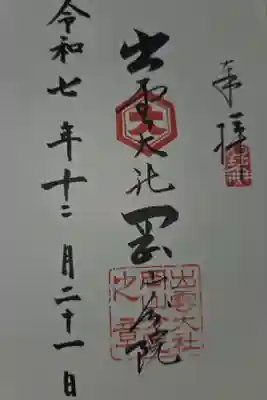 奉拝
出雲大社岡山分院
出雲大社
岡山分院
之章
令和七年十二月二十一日